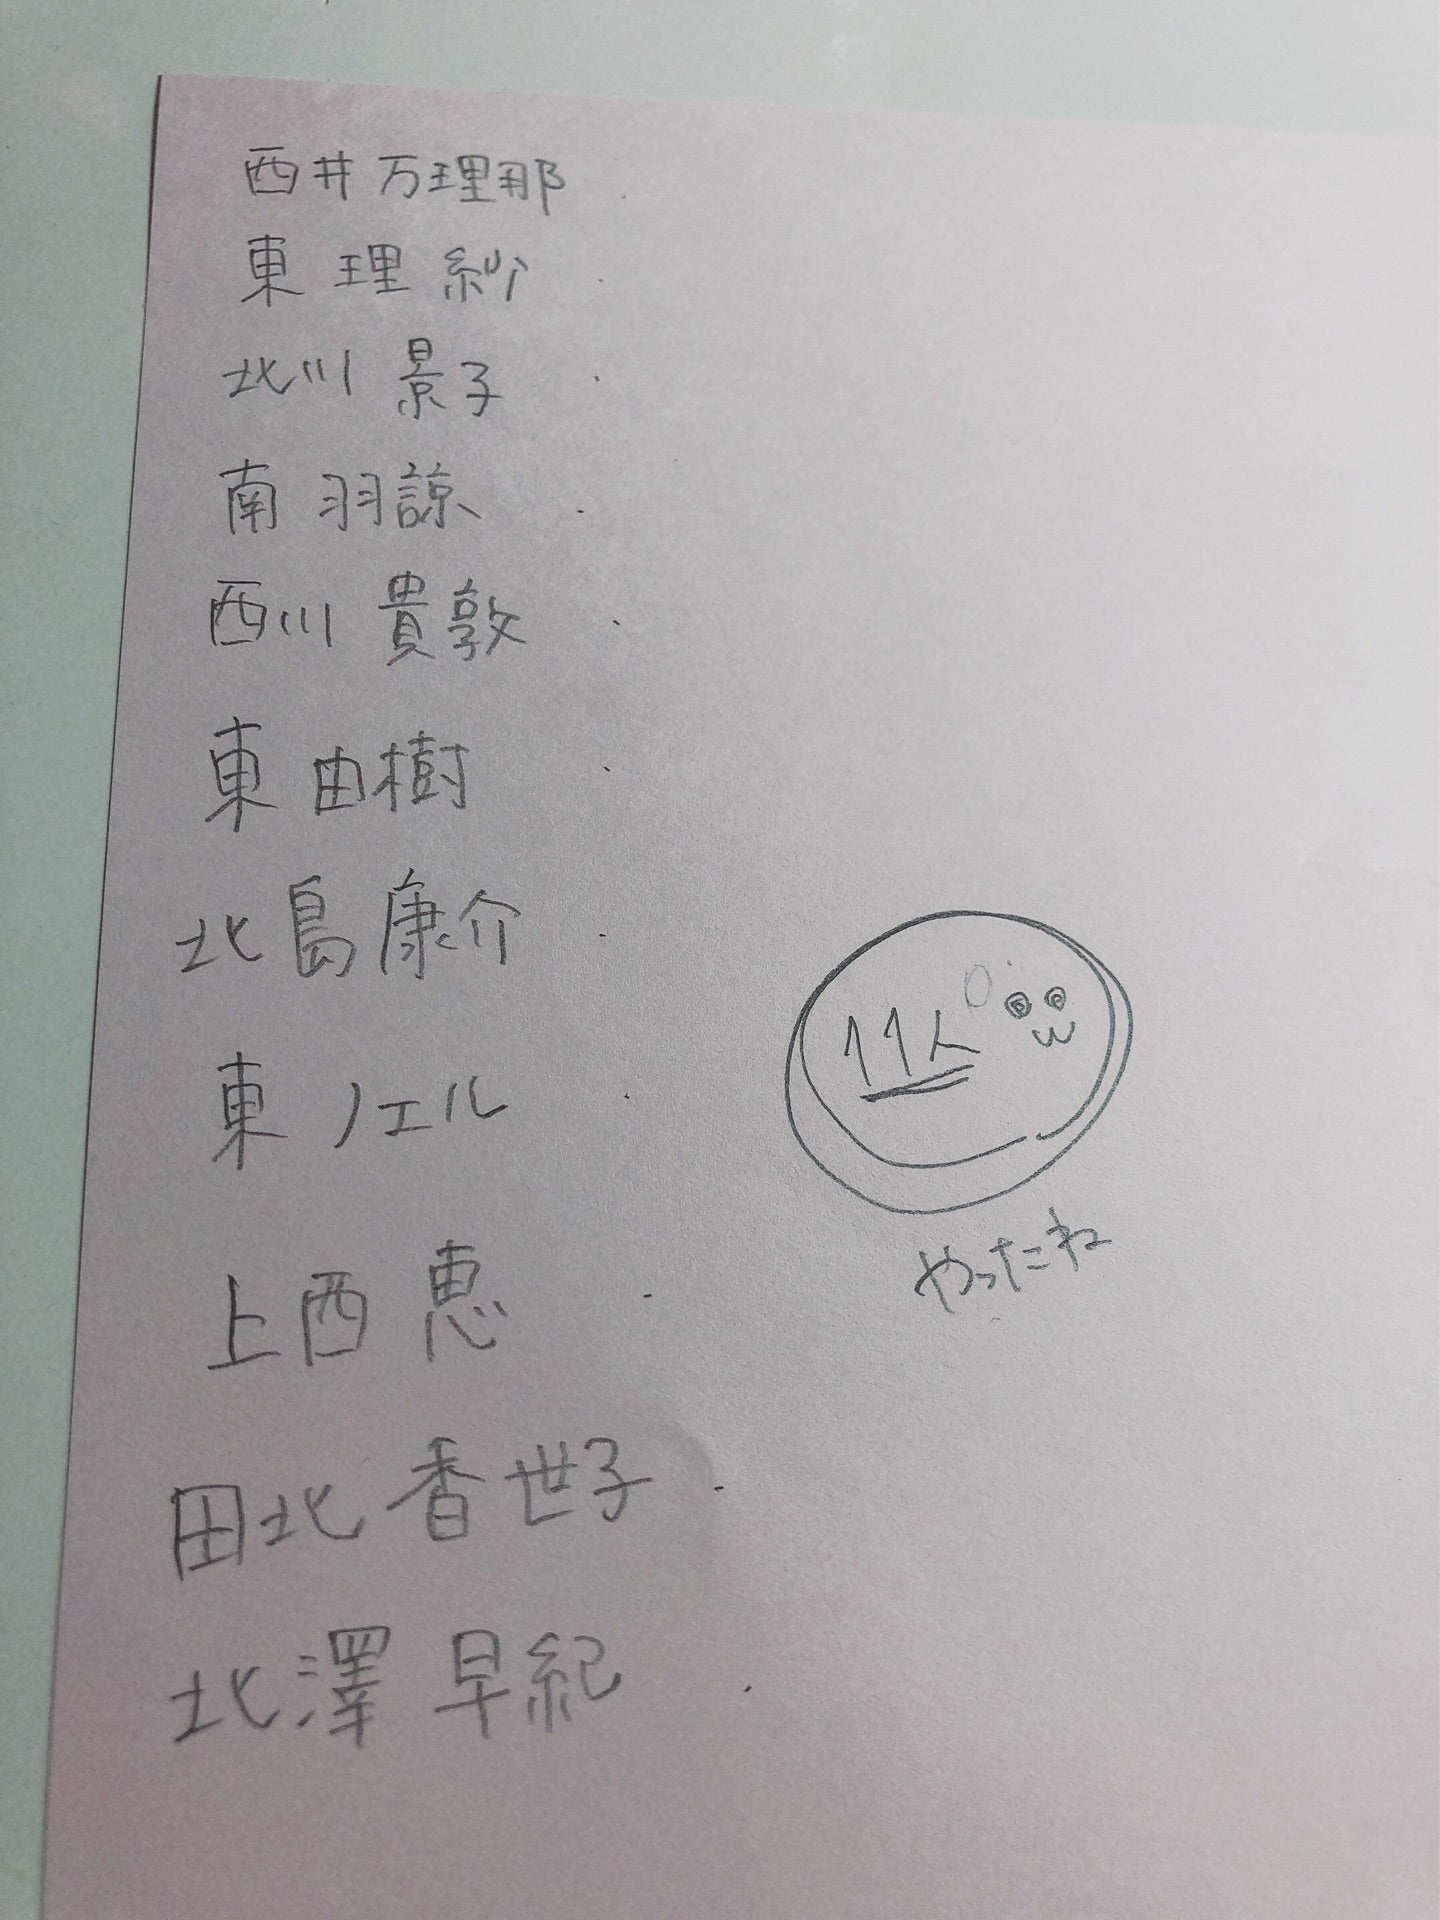 西井万理那
東 理紗
北川 景子
南 羽諒
西川 貴敦
東 由樹
北島康介
東 ノエル
11人
上西 恵
やったね
田北 香世子
北澤 早紀